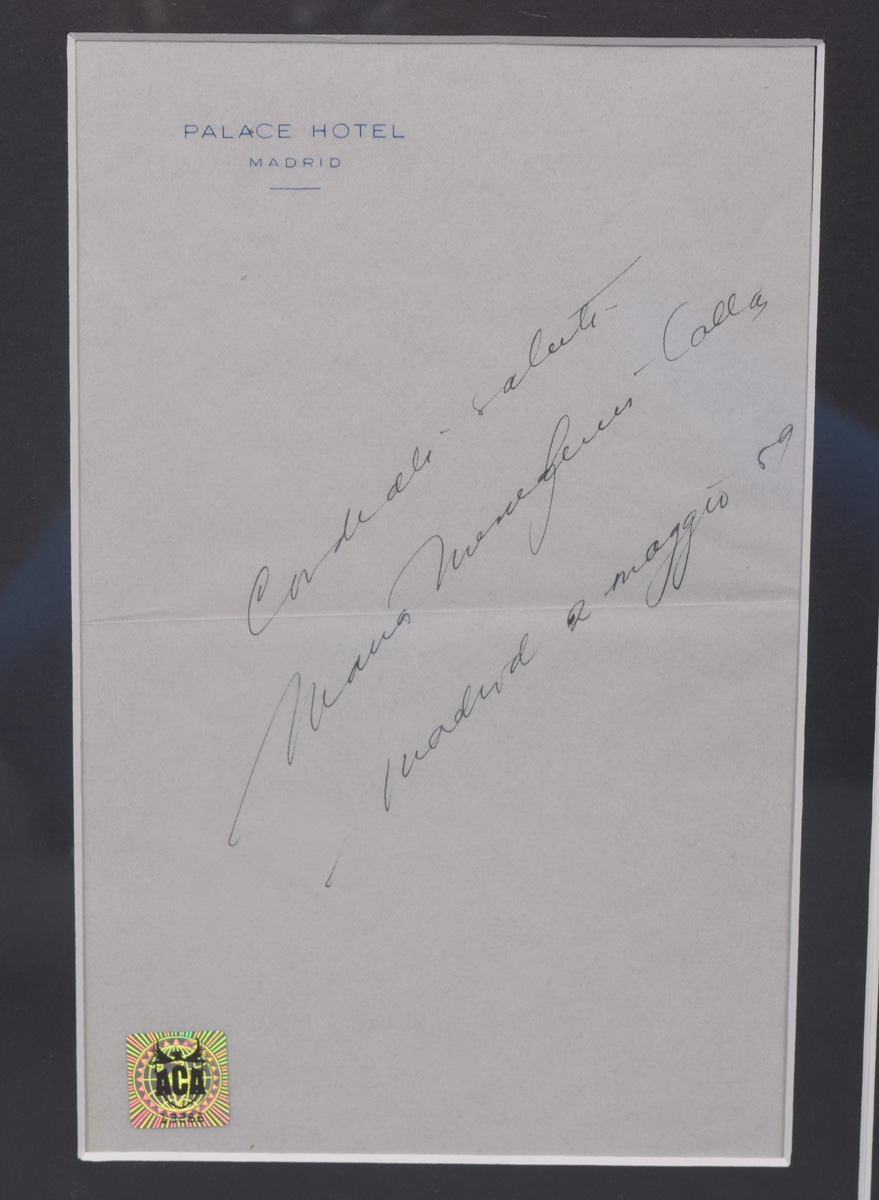 PALACE HOTEL
MADRID
Cordiali saluti
Maria Meneghini-Callas
Madrid 2 maggio 59
ACA